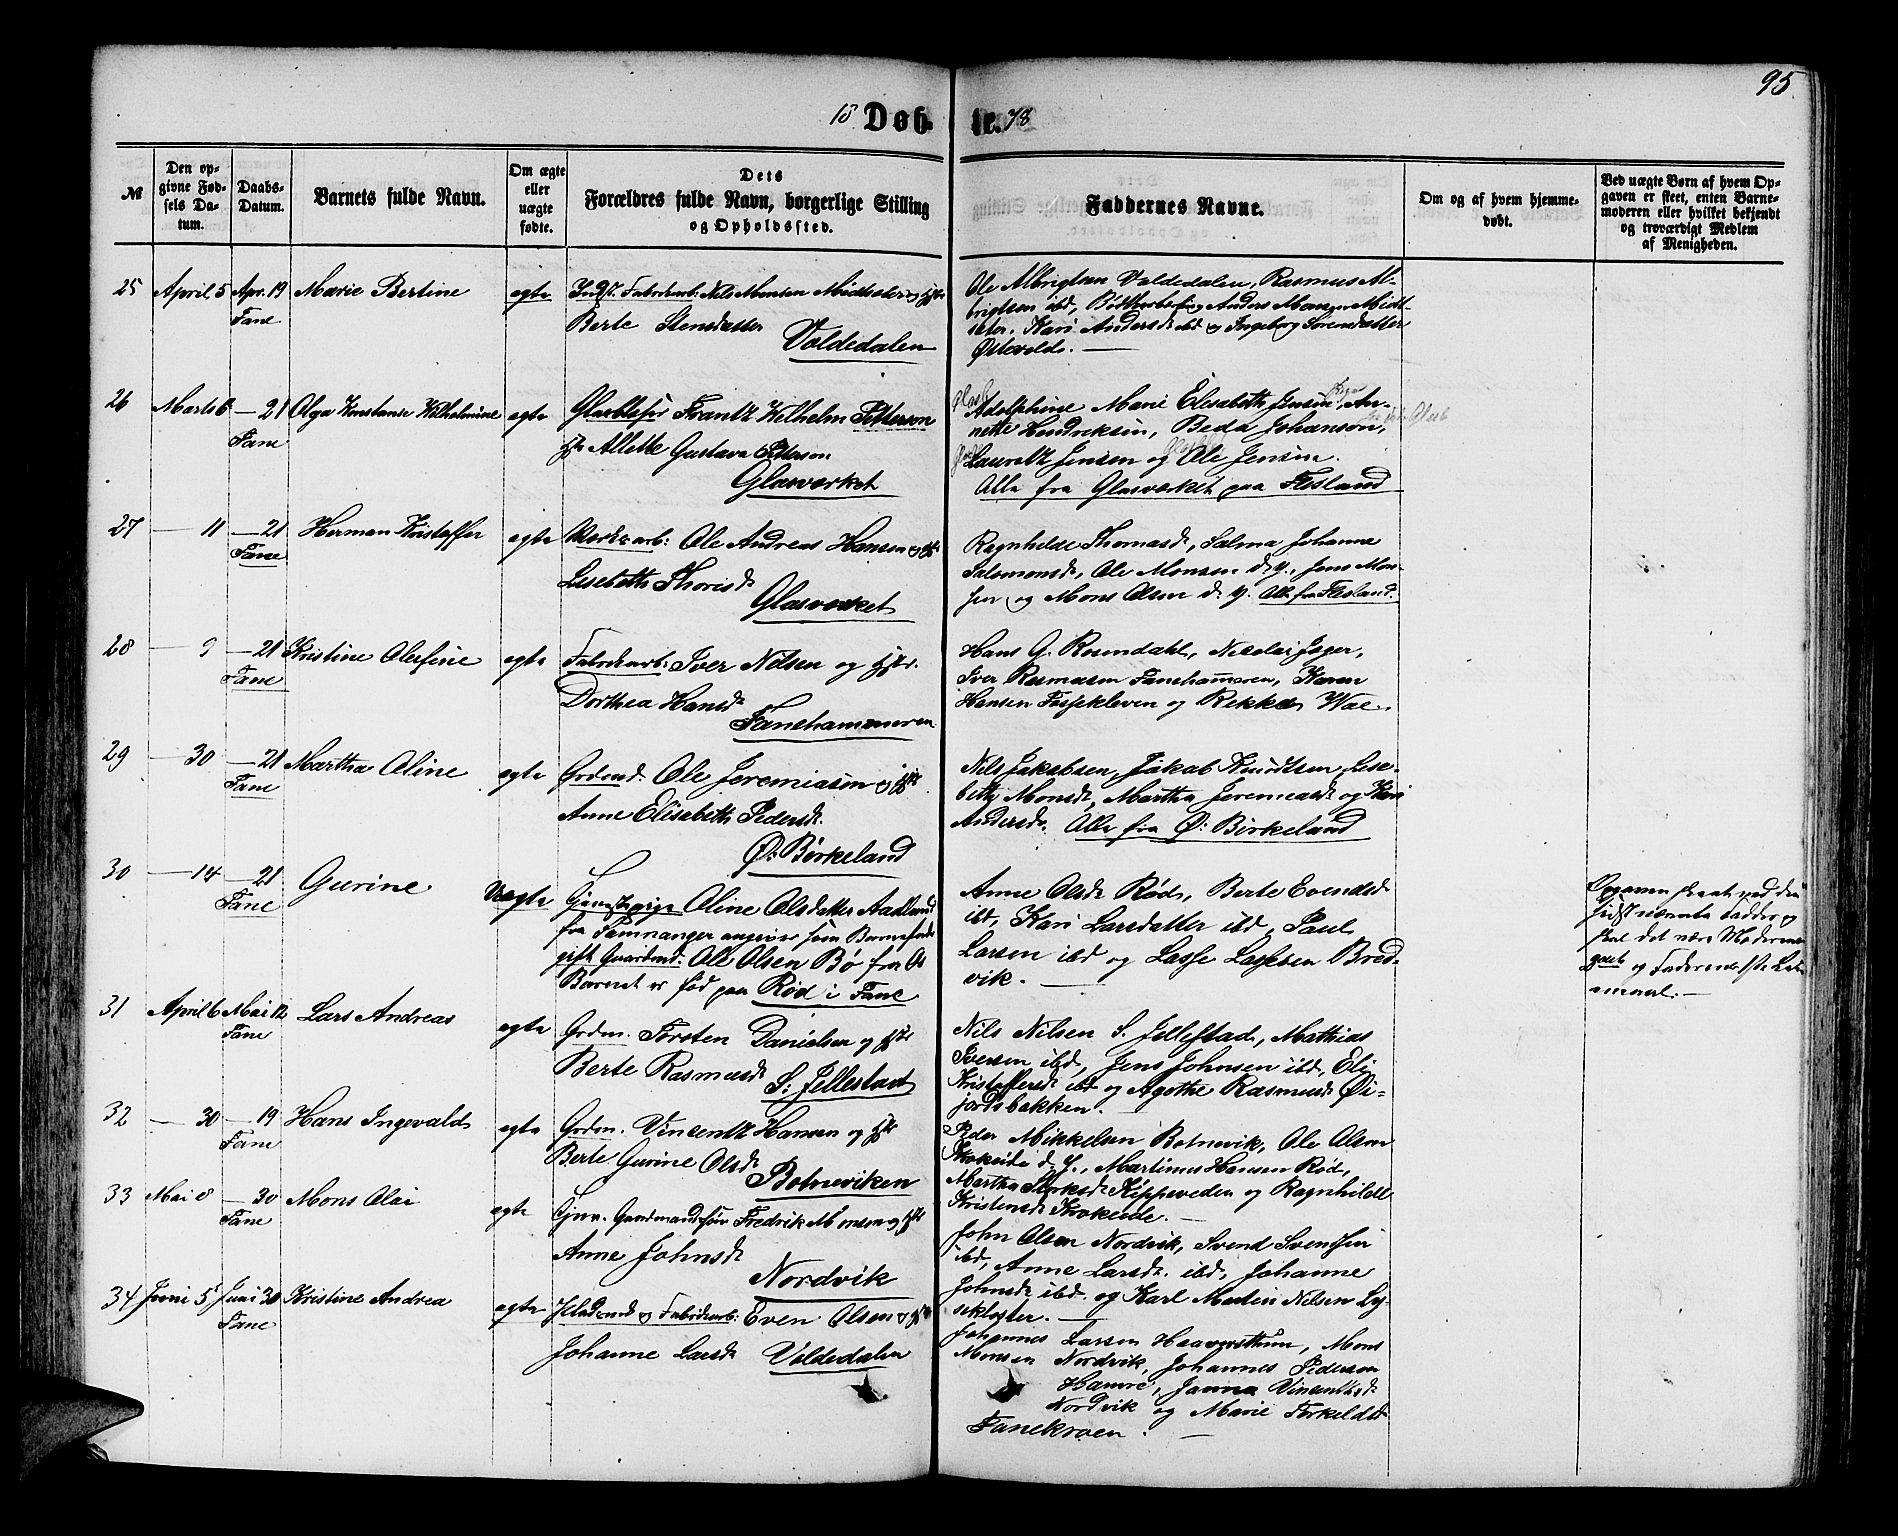 95
18 Døb- te. 78
№
Den op-
givne Fød-
sels Da-
tum.
Daabs-
Datum.
Barnets fulde Navn.
Om ægte
eller
uægte
fødte.
Dets
Forældres fulde Navn, borgerlige Stilling
og Opholdssted.
Faddernes Navne.
Om og af hvem hjemme-
døbt.
Ved uægte Børn af hvem Op-
gaven er skeet, enten Barne-
moderen eller hvilket bekjendt
og troværdigt Medlem
af Menigheden.
25 April 5 Apr. 19 Marie Bertine egte Indst. Fabrikarb: Nils Monsen Midtsæter og Hstr
Fane
Berte Stensdatter
Voldedalen
Ole Albrigtsen Voldedalen, Rasmus Al-
brigtsen ibd, Anders Monsen Midt-
sæter. Kari Andersd ibd og Ingeborg Sørensdatter
Østevold. —
26 Marts 6 — 21 Olga Konstanse Wilhelmine egte Glasblæser Frantz Wilhelm Petterson
Fane
Hstr Allette Gustava Petterson
Glasværket
Adolphine Marie Elisabeth Jensen, An-
nette Hendriksen, Beda Johanson,
Lauretz Jensen og Ole Jensen.
Alle fra Glasværket paa Flesland
27 — 11 — 21 Herman Kristoffer egte Værksarb: Ole Andreas Hansen og Hstr
Fane
Lisebeth Thorisd
Glasværket
Ragnhilde Thomasd, Salma Johanne
Salomonsd, Ole Monsen d. y., Jens Mon-
sen og Mons Olsen d. y. Alle fra Flesland.
28 — 9 — 21 Kristine Olufine egte Fabrikarb: Iver Nilsen og Hstr.
Fane
Dorthea Hansd
Fanehammeren
Hans G. Rosendahl, Nicolai Jæger,
Iver Rasmusen Fanehammeren, Karen
Hansen Fossekleven og Rekka Wae.
29 — 30 — 21 Martha Oline egte Grdmd. Ole Jeremiasen og Hstr
Fane
Anne Elisabeth Pedersd.
Ø: Birkeland
Nils Jakobsen, Jakob Knudtsen, Lise-
beth Monsd, Martha Jeremiasd og Kari
Andersd. Alle fra Ø: Birkeland
30 — 14 — 21 Gurine Uægte Tjenestepige Oline Olsdatter Aadland
Fane
fra Samnanger angiver som Barnefader
gift Gaardmd. Ole Olsen Bø fra Os
Barnet er fød paa Rød i Fane
Anne Olsd Rød, Berte Evensd
ibd, Kari Larsdatter ibd, Paul
Larsen ibd og Lasse Lassesen Bred-
vik. —
Opgaven skeet ved den
sidst nævnte Fadder og
skal det være Moderens
og Faderens 1ste Leier-
maal. —
31 April 6 Mai 12 Lars Andreas egte Grdm. Torsten Danielsen og Hstr
Fane
Berte Rasmusd S: Jellestad
Nils Nilsen S. Jellestad, Mathias
Iversen ibd, Jens Johnsen ibd, Eli
Kristoffersd ibd og Agothe Rasmusd Øi-
jordsbakken.
32 — 30 — 19 Hans Ingevald egte Grdm. Vincentz Hansen og Hstr
Fane
Berte Gurine Olsd
Botneviken
Peder Mikkelsen Botnevik, Ole Olsen
Krokeide d. y., Martinus Hansen Rød,
Martha Kippeveden og Ragnhilde
Kristensd Krokeide. —
33 Mai 8 — 30 Mons Olai egte Tjen. Gaardmandssøn Fredrik Monsen og Hstr
Fane
Anne Johnsd
Nordvik
John Olsen Nordvik, Svend Svensen
ibd, Anne Larsd. ibd, Johanne
Johnsd ibd. og Karl Martin Nilsen Ly-
sekloster. —
34 Juni 5 Juni 30 Kristine Andrea egte Pladsmd og Fabrikarb: Even Olsen og Hstr
Fane
Johanne Larsd Voldedalen
Johannes Larsen Haaversthun, Mons
Monsen Nordvik, Johannes Pederson
Hamre, Janna Vincentsd
Nordvik og Marie Torkeldsd
Fanekroen. —